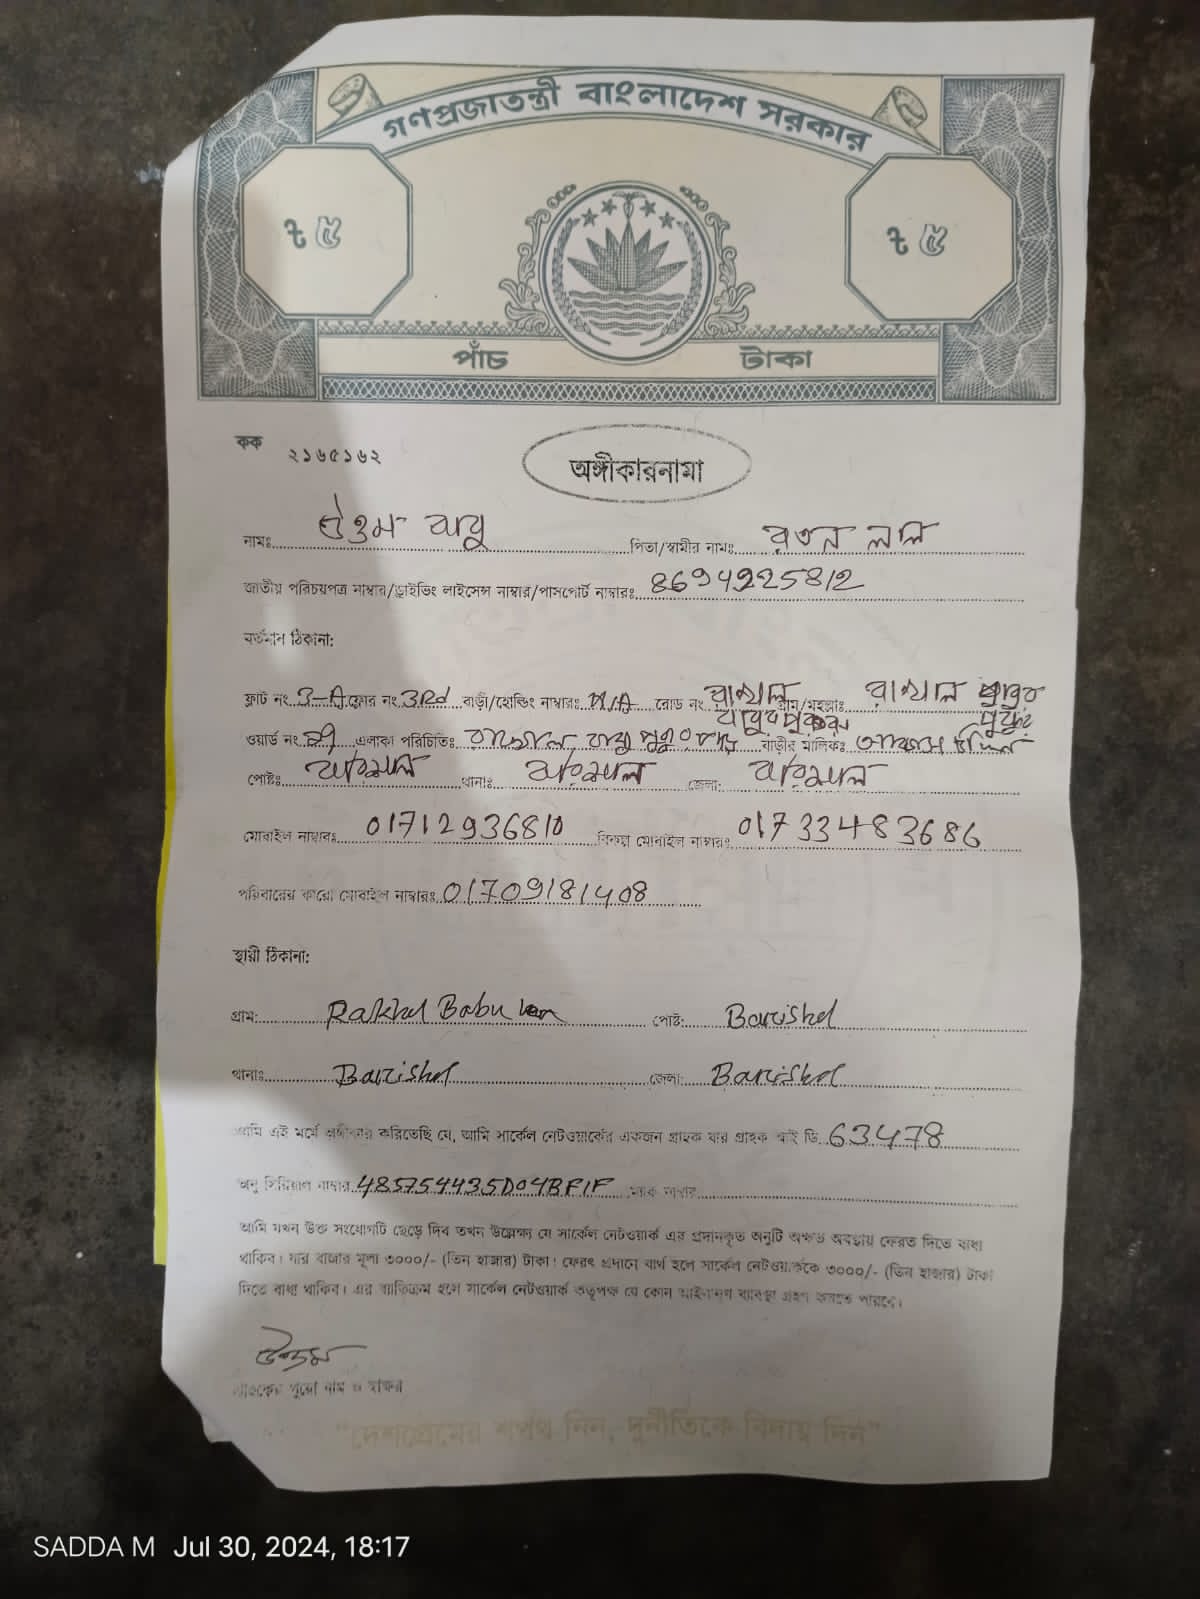 গণপ্রজাতন্ত্রী বাংলাদেশ সরকার
৳ ৫ ৳ ৫
পাঁচ টাকা
কক ২১৬৫১৬২
অঙ্গীকারনামা
নামঃ উত্তম বাবু পিতা/স্বামীর নামঃ রতন লাল
জাতীয় পরিচয়পত্র নাম্বার/ড্রাইভিং লাইসেন্স নাম্বার/পাসপোর্ট নাম্বারঃ 8694925812
বর্তমান ঠিকানা:
ফ্লাট নং 3-A ফ্লোর নং 3Rd বাড়ী/হোল্ডিং নাম্বারঃ N/A রোড নং রাখাল বাবুর পুকুর গ্রাম/মহল্লাঃ রাখাল বাবুর পুকুর
ওয়ার্ড নং এলাকা পরিচিতিঃ রাখাল বাবু পুকুর বাড়ীর মালিকঃ
পোষ্টঃ বরিশাল থানাঃ বরিশাল জেলা: বরিশাল
মোবাইল নাম্বারঃ 01712936810 বিকল্প মোবাইল নাম্বারঃ 01733483686
পরিবারের কারো মোবাইল নাম্বারঃ 01709181408
স্থায়ী ঠিকানা:
গ্রাম: Rakhal Babu পোষ্ট: Barishal
থানাঃ Barishal জেলা: Barishal
আমি এই মর্মে অঙ্গীকার করিতেছি যে, আমি সার্কেল নেটওয়ার্কের একজন গ্রাহক যার গ্রাহক আই ডি 63478
অনু সিরিয়াল নাম্বার 485754435D04BF1F ম্যাক নাম্বার
আমি যখন উক্ত সংযোগটি ছেড়ে দিব তখন উল্লেক্ষ্য যে সার্কেল নেটওয়ার্ক এর প্রদানকৃত অনুটি অক্ষত অবস্থায় ফেরত দিতে বাধ্য
থাকিব। যার বাজার মূল্য ৩০০০/- (তিন হাজার) টাকা। ফেরৎ প্রদানে ব্যর্থ হলে সার্কেল নেটওয়ার্ককে ৩০০০/- (তিন হাজার) টাকা
দিতে বাধ্য থাকিব। এর ব্যতিক্রম হলে সার্কেল নেটওয়ার্ক কতৃপক্ষ যে কোন আইনানুগ ব্যবস্থা গ্রহণ করতে পারবে।
উত্তম
গ্রাহকের পুরো নাম ও স্বাক্ষর
"দেশপ্রেমের শপথ নিন, দুর্নীতিকে বিদায় দিন"
SADDA M Jul 30, 2024, 18:17